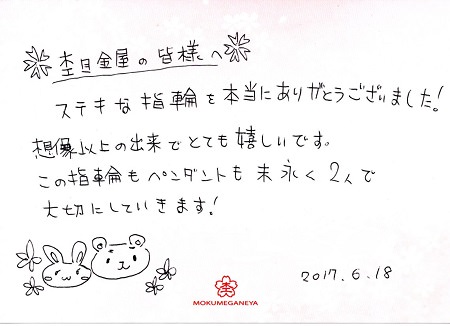 杢目金屋の皆様へ
ステキな指輪を本当にありがとうございました!
想像以上の出来でとても嬉しいです。
この指輪もペンダントも末永く2人で
大切にしていきます!
2017.6.18
MOKUMEGANEYA